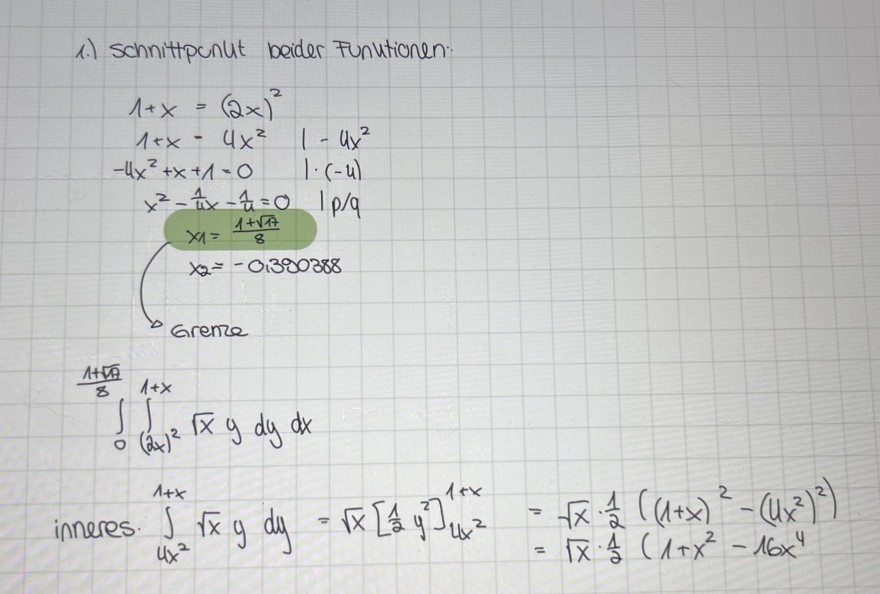 1.) Schnittpunkt beider Funktionen:
1+x = (2x)²
1+x = 4x² | - 4x²
-4x² +x +1 = 0 | · (-4)
x² - 1/4x - 1/4 = 0 | p/q
x1 = (1+√17)/8
x2 = -0,390388
Grenze
∫_0^{(1+√17)/8} ∫_{(2x)²}^{1+x} √x y dy dx
inneres: ∫_{4x²}^{1+x} √x y dy = √x [1/2 y²]_{4x²}^{1+x} = √x · 1/2 ((1+x)² - (4x²)²)
= √x · 1/2 (1+x² - 16x⁴